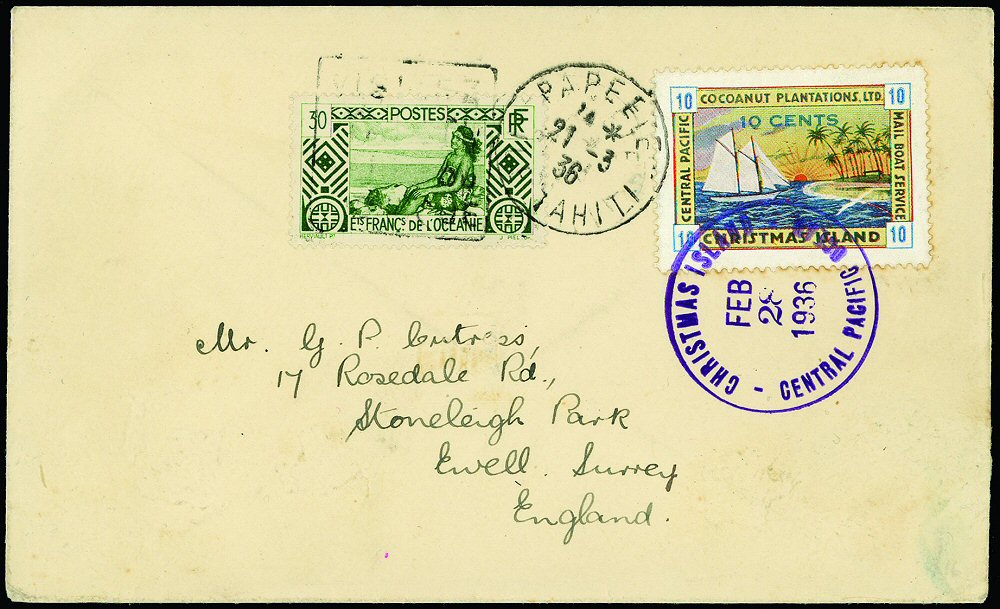 VISITEZ
30
POSTES
RF
Ets FRANCs DE L'OCEANIE
PAPEETE
21 -3
36
TAHITI
10
COCOANUT PLANTATIONS, LTD.
10
10 CENTS
CENTRAL PACIFIC
MAIL BOAT SERVICE
10
CHRISTMAS ISLAND
10
CHRISTMAS ISLAND
FEB
28
1936
- CENTRAL PACIFIC
Mr. G. P. Cutress,
17 Rosedale Rd.,
Stoneleigh Park
Ewell. Surrey
England.